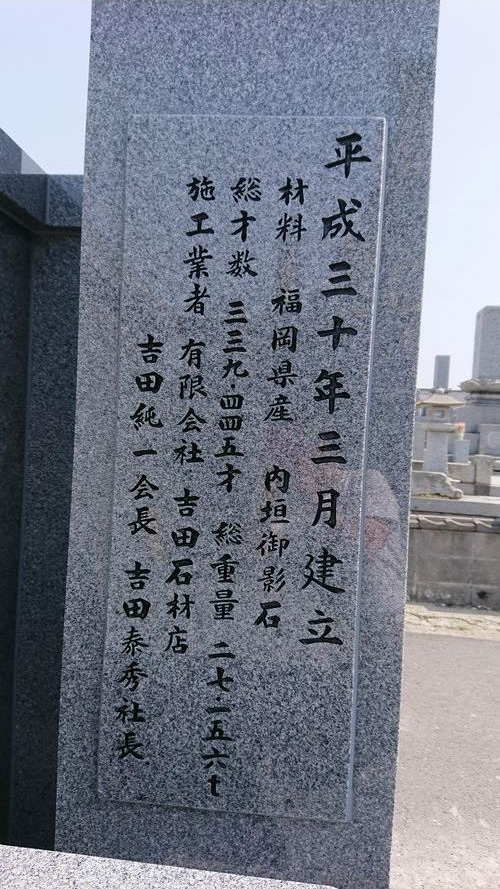 平成三十年三月建立
材料 福岡県産 内垣御影石
総才数 三三九・四四五才 総重量 二七・一五六t
施工業者 有限会社 吉田石材店
吉田純一会長 吉田泰秀社長